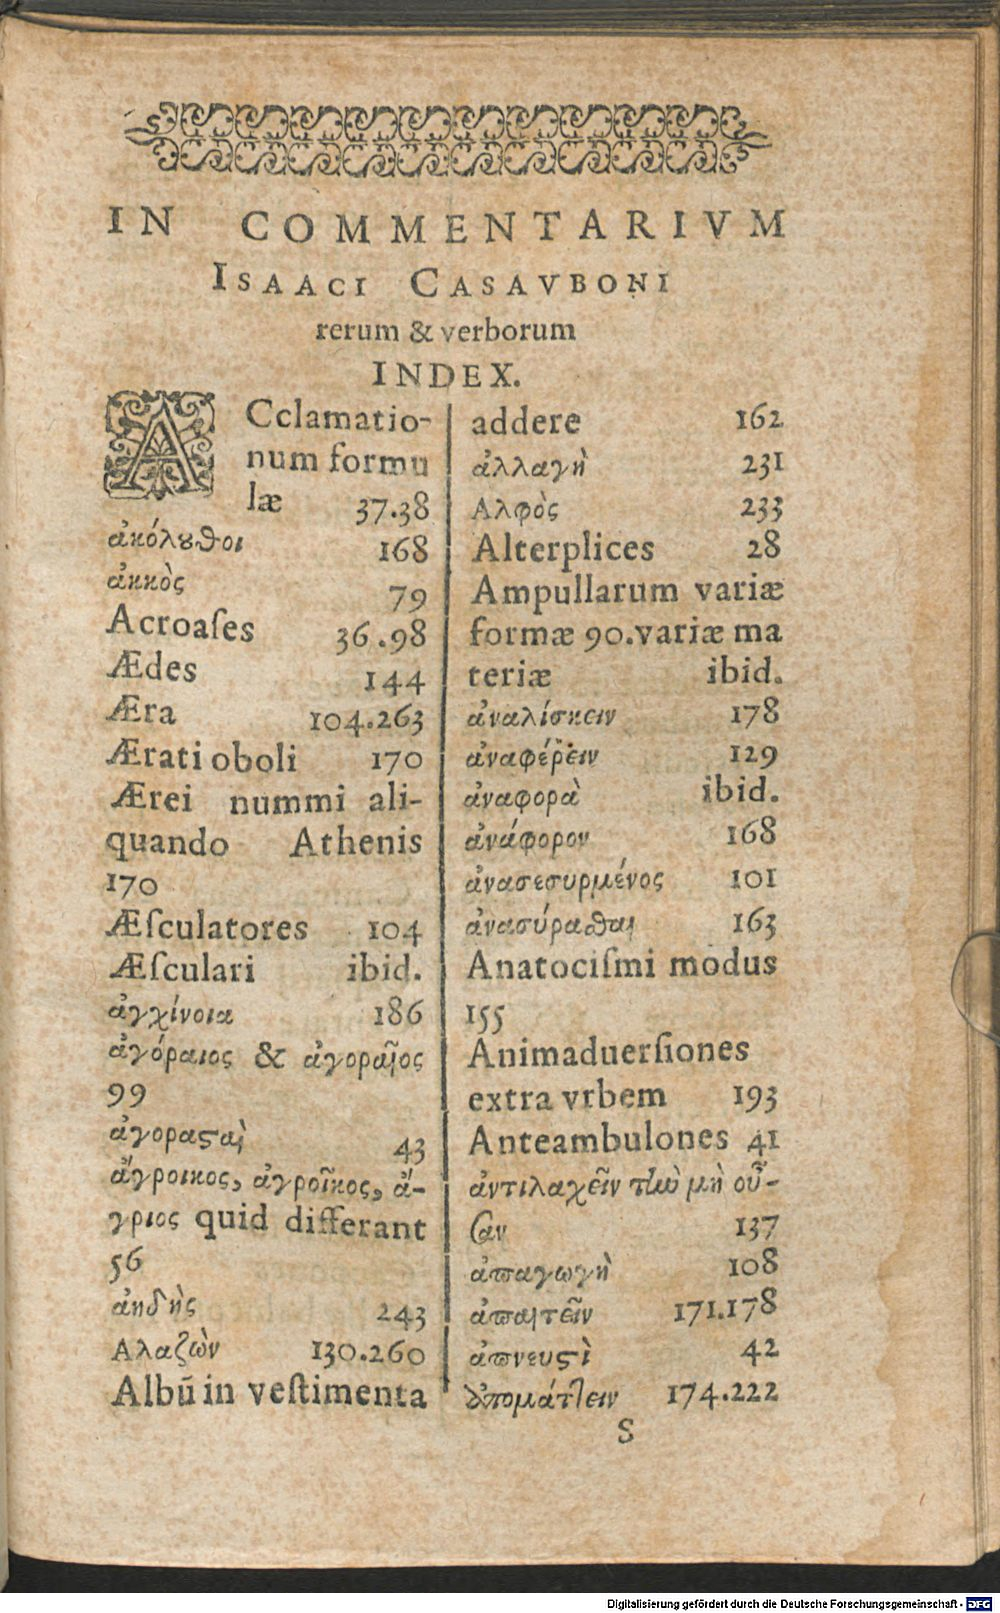 IN COMMENTARIVM
ISAACI CASAVBONI
rerum & verborum
INDEX.
ACclamatio-
num formu
læ 37.38
ἀκόλουθοι 168
ἀκκὸς 79
Acroaſes 36.98
Ædes 144
Æra 104.263
Ærati oboli 170
Ærei nummi ali-
quando Athenis
170
Æſculatores 104
Æſculari ibid.
ἀγχίνοια 186
ἀγόραιος & ἀγοραῖος
99
ἀγοραϛαὶ 43
ἄγροικος, ἀγροῖκος, ἄ-
γριος quid differant
56
ἀηδὴς 243
Αλαζὼν 130.260
Albū in veſtimenta
addere 162
ἀλλαγὴ 231
Αλφὸς 233
Alterplices 28
Ampullarum variæ
formæ 90.variæ ma
teriæ ibid.
ἀναλίσκειν 178
ἀναφέρειν 129
ἀναφορὰ ibid.
ἀνάφορον 168
ἀνασεσυρμένος 101
ἀνασύρασθαι 163
Anatociſmi modus
155
Animaduerſiones
extra vrbem 193
Anteambulones 41
ἀντιλαχεῖν τὴν μὴ οὖ-
σαν 137
ἀπαγωγὴ 108
ἀπαιτεῖν 171.178
ἀπνευϛὶ 42
ἀπομάτειν 174.222
S
Digitalisierung gefördert durch die Deutsche Forschungsgemeinschaft - DFG